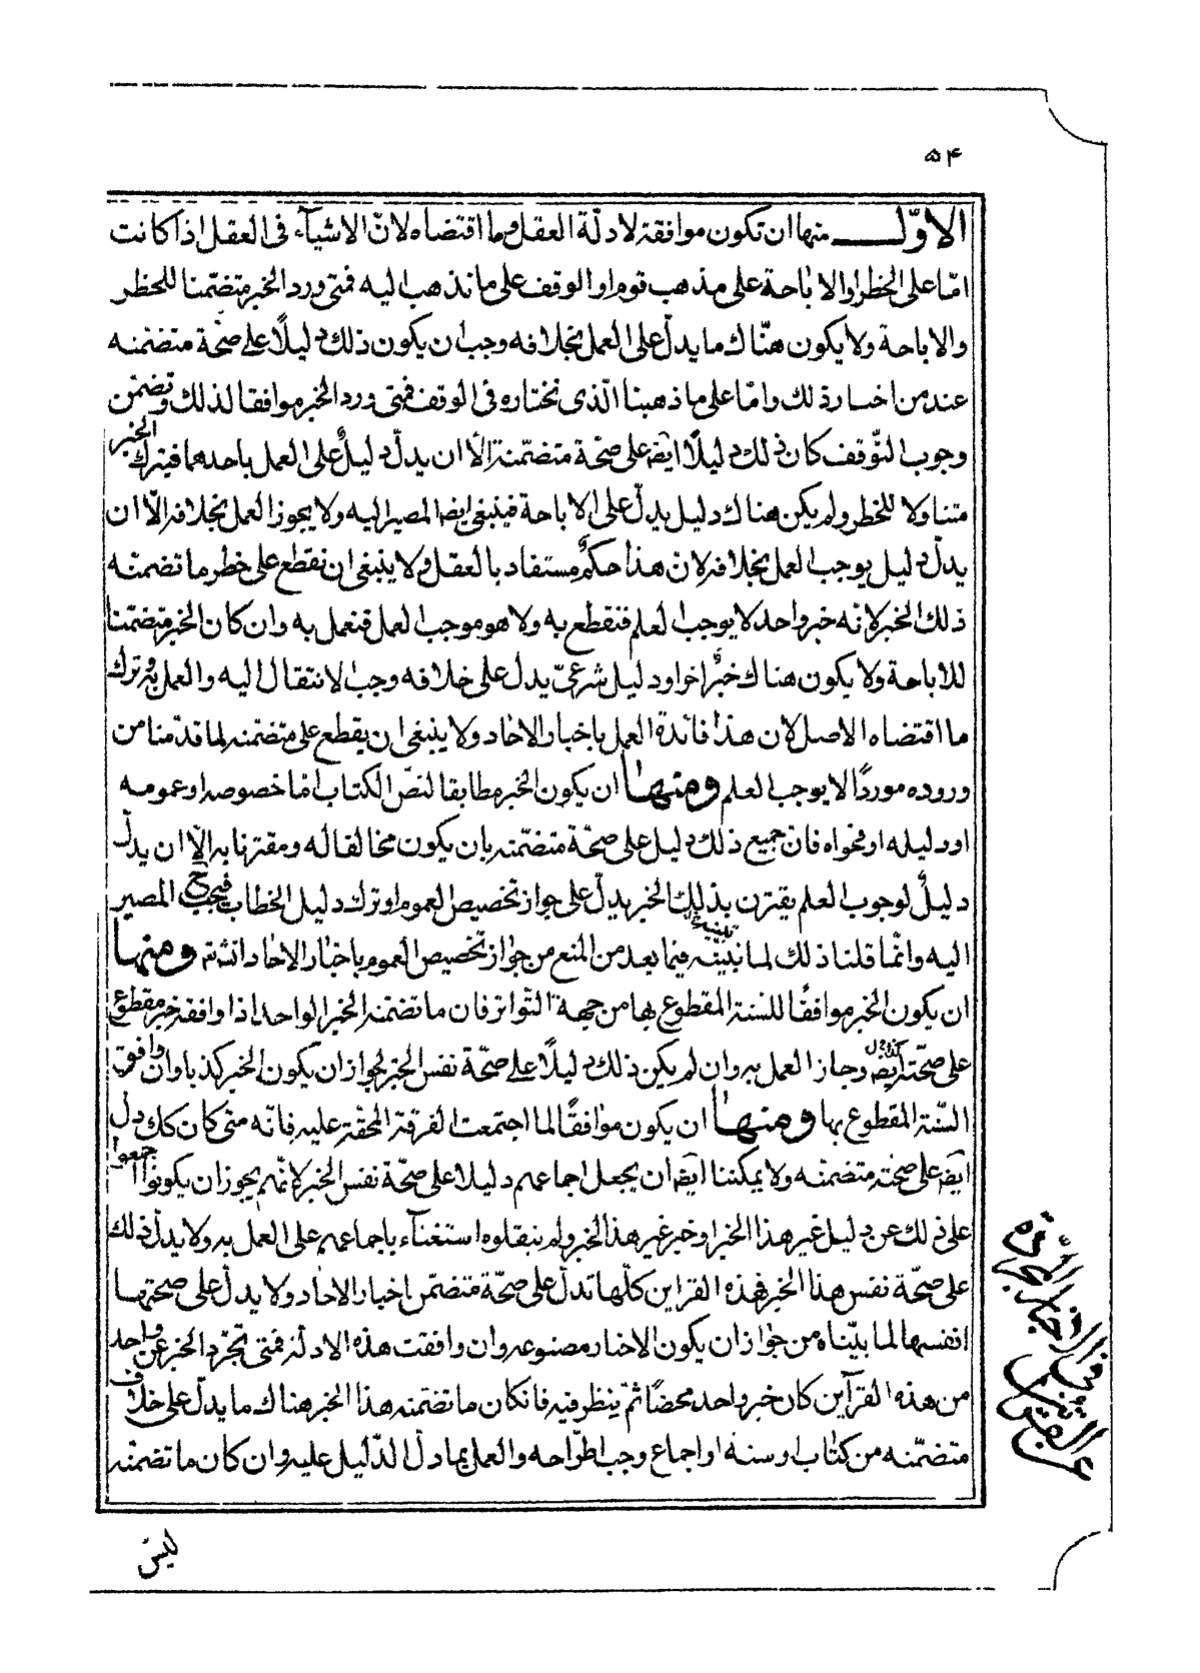 ۵۴
الاوّل منها ان تكون موافقة لادلّة العقل وما اقتضاه لانّ الاشيآء فى العقل اذا كانت
امّا على الخطر او الاباحة على مذهب قوم او الوقف على ما نذهب اليه فمتى ورد الخبر متضمّنا للحظر
والاباحة ولا يكون هنّاك ما يدلّ على العمل بخلافه وجب ان يكون ذلك دليلًا على صحّة متضمّنه
عند من اختار ذلك وامّا على ما ذهبنا الّذى نختاره فى الوقف فمتى ورد الخبر موافقا لذلك وتضمّن
وجوب التّوقف كان ذلك دليلًا ايضا على صحّة متضمّنه الّا ان يدلّ دليلٌ على العمل باحدهما فيترك الخبر
متناولا للخطر ولم يكن هناك دليل يدلّ على الاباحة فينبغى ايضا المصير اليه ولا يجوز العمل بخلافه الّا ان
يدلّ دليل يوجب العمل بخلافه لان هذا حكمٌ مستفاد بالعقل ولا ينبغى ان نقطع على خطر ما تضمنه
ذلك الخبر لانه خبر واحد لا يوجب العلم فنقطع به ولا هو موجب العمل فنعمل به وان كان الخبر متضمّنا
للاباحة ولا يكون هناك خبرٌ اخر او دليل شرعىّ يدل على خلافه وجب الانتقال اليه والعمل به وترك
ما اقتضاه الاصل لان هذا فائدة العمل باخبار الاحاد ولا ينبغى ان يقطع على متضمنه لما قدّمنا من
وروده موردًا لا يوجب العلم ومنها ان يكون الخبر مطابقا لنصّ الكتاب امّا خصوصه او عمومه
او دليله او فحواه فان جميع ذلك دليل على صحّة متضمّنه بان يكون مخالفا له ومقترنا به الّا ان يدلّ
دليلٌ لوجوب العلم يقترن بذلك الخبر يدلّ على جواز تخصيص العموم او ترك دليل الخطاب فيجب ح المصير
اليه وانّما قلنا ذلك لما نبيّنه فيما بعد من المنع من جواز تخصيص العموم باخبار الاحاد انشآء تم ومنها
ان يكون الخبر موافقًا للسنة المقطوع بها من جهة التّواتر فان ما تضمنه الخبر الواحد اذا وافقه خبر مقطوع
على صحّته ايضا وجاز العمل به وان لم يكن ذلك دليلًا على صحّة نفس الخبر لجواز ان يكون الخبر كذبا وان وافق
السّنّة المقطوع بها ومنها ان يكون موافقًا لما اجتمعت الفرقة المحقّة عليه فانّه متى كان كك دلّ
ايضا على صحّة متضمّنه ولا يمكننا ايضا ان يجعل اجماعهم دليلا على صحّة نفس الخبر لانّهم يجوز ان يكونوا اجمعوا
على ذلك عن دليل غير هذا الخبر او خبر غير هذا الخبر ولم ينقلوه استغنآء باجماعهم على العمل به ولا يدلّ ذلك
على صحّة نفس هذا الخبر فهذه القراين كلّها تدلّ على صحّة متضمّن اخبار الاحاد ولا يدلّ على صحتها
انفسها لما بيّناه من جواز ان يكون الاخبار مصنوعه وان وافقت هذه الادلّة فمتى تجرّد الخبر عن واحد
من هذه القرآين كان خبر واحد محضًا ثمّ ينظر فيه فانكان ما تضمنه هذا الخبر هناك ما يدلّ على خلاف
متضمّنه من كتاب او سنة او اجماع وجب اطّراحه والعمل بما دلّ الدّليل عليه وان كان ما تضمنّه
ليس